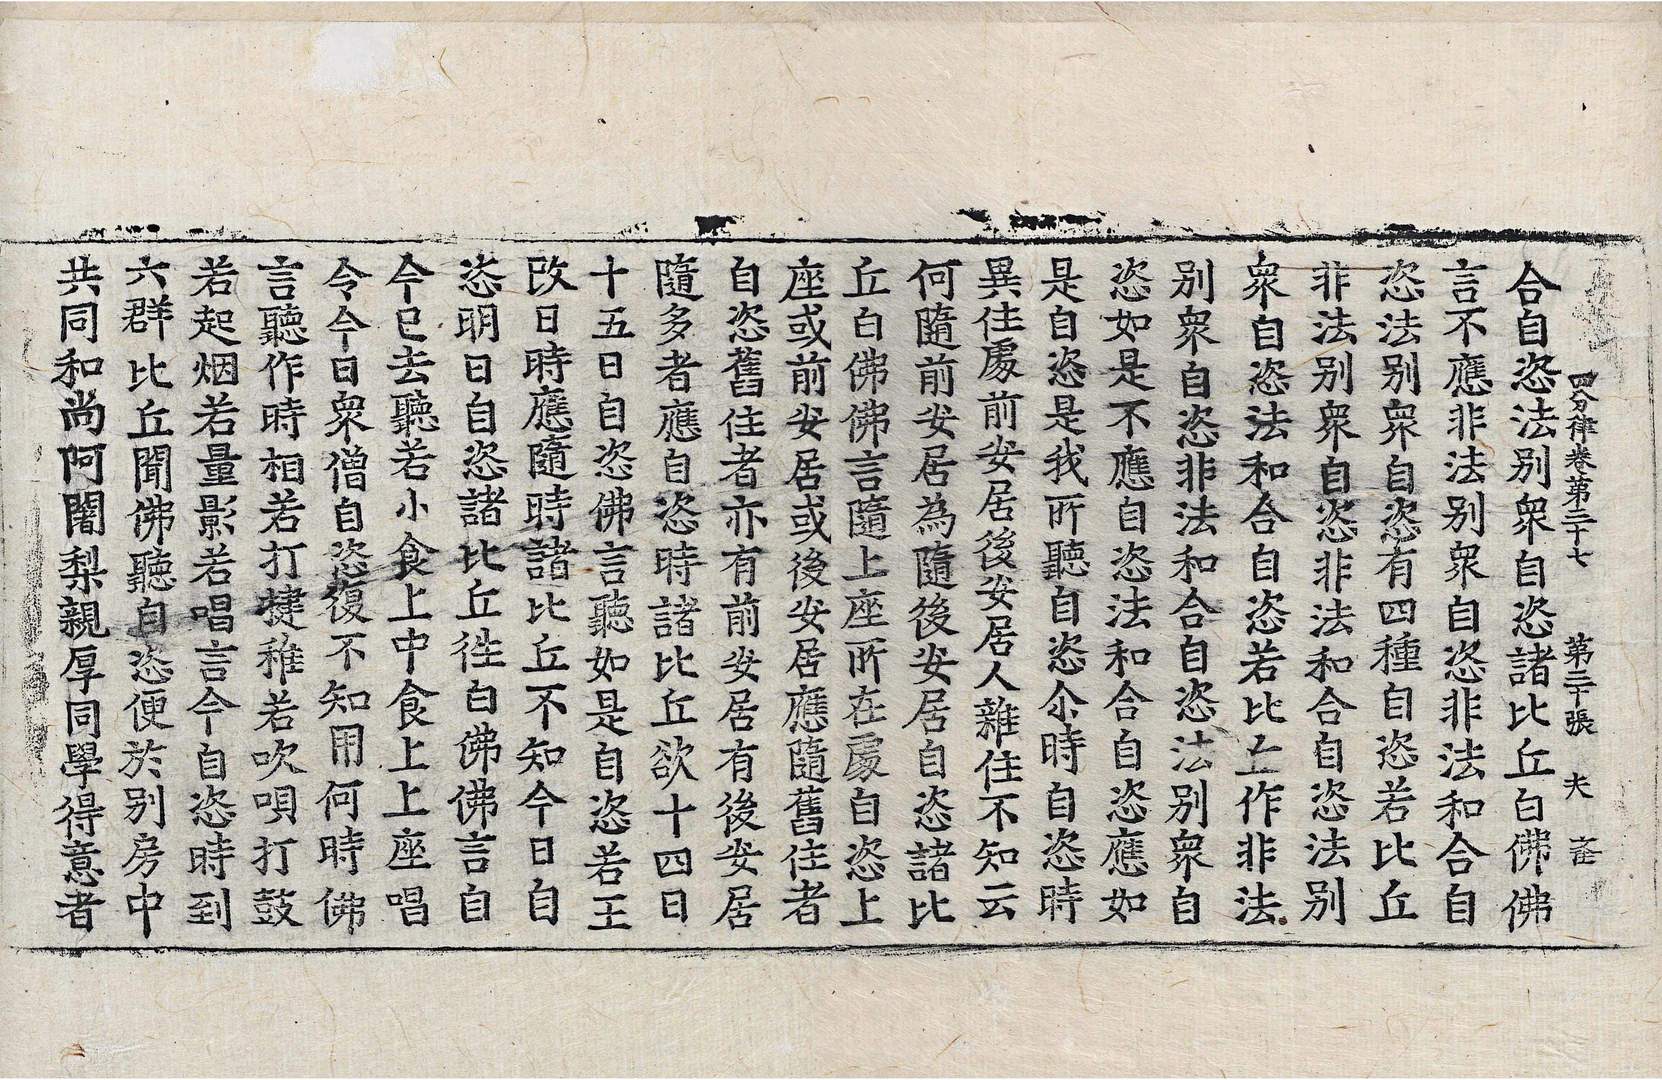 四分律卷第三十七 第三十張 夫
合自恣法別衆自恣諸比丘白佛佛
言不應非法別衆自恣非法和合自
恣法別衆自恣有四種自恣若比丘
非法別衆自恣非法和合自恣法別
衆自恣法和合自恣若比丘作非法
別衆自恣非法和合自恣法別衆自
恣如是不應自恣法和合自恣應如
是自恣是我所聽自恣尒時自恣時
異住處前安居後安居人雜住不知云
何隨前安居為隨後安居自恣諸比
丘白佛佛言隨上座所在處自恣上
座或前安居或後安居應隨舊住者
自恣舊住者亦有前安居有後安居
隨多者應自恣時諸比丘欲十四日
十五日自恣佛言聽如是自恣若王
改日時應隨時諸比丘不知今日自
恣明日自恣諸比丘徃白佛佛言自
今已去聽若小食上中食上上座唱
令今日衆僧自恣復不知用何時佛
言聽作時相若打揵稚若吹唄打鼓
若起烟若量影若唱言今自恣時到
六群比丘聞佛聽自恣便於別房中
共同和尚阿闍梨親厚同學得意者